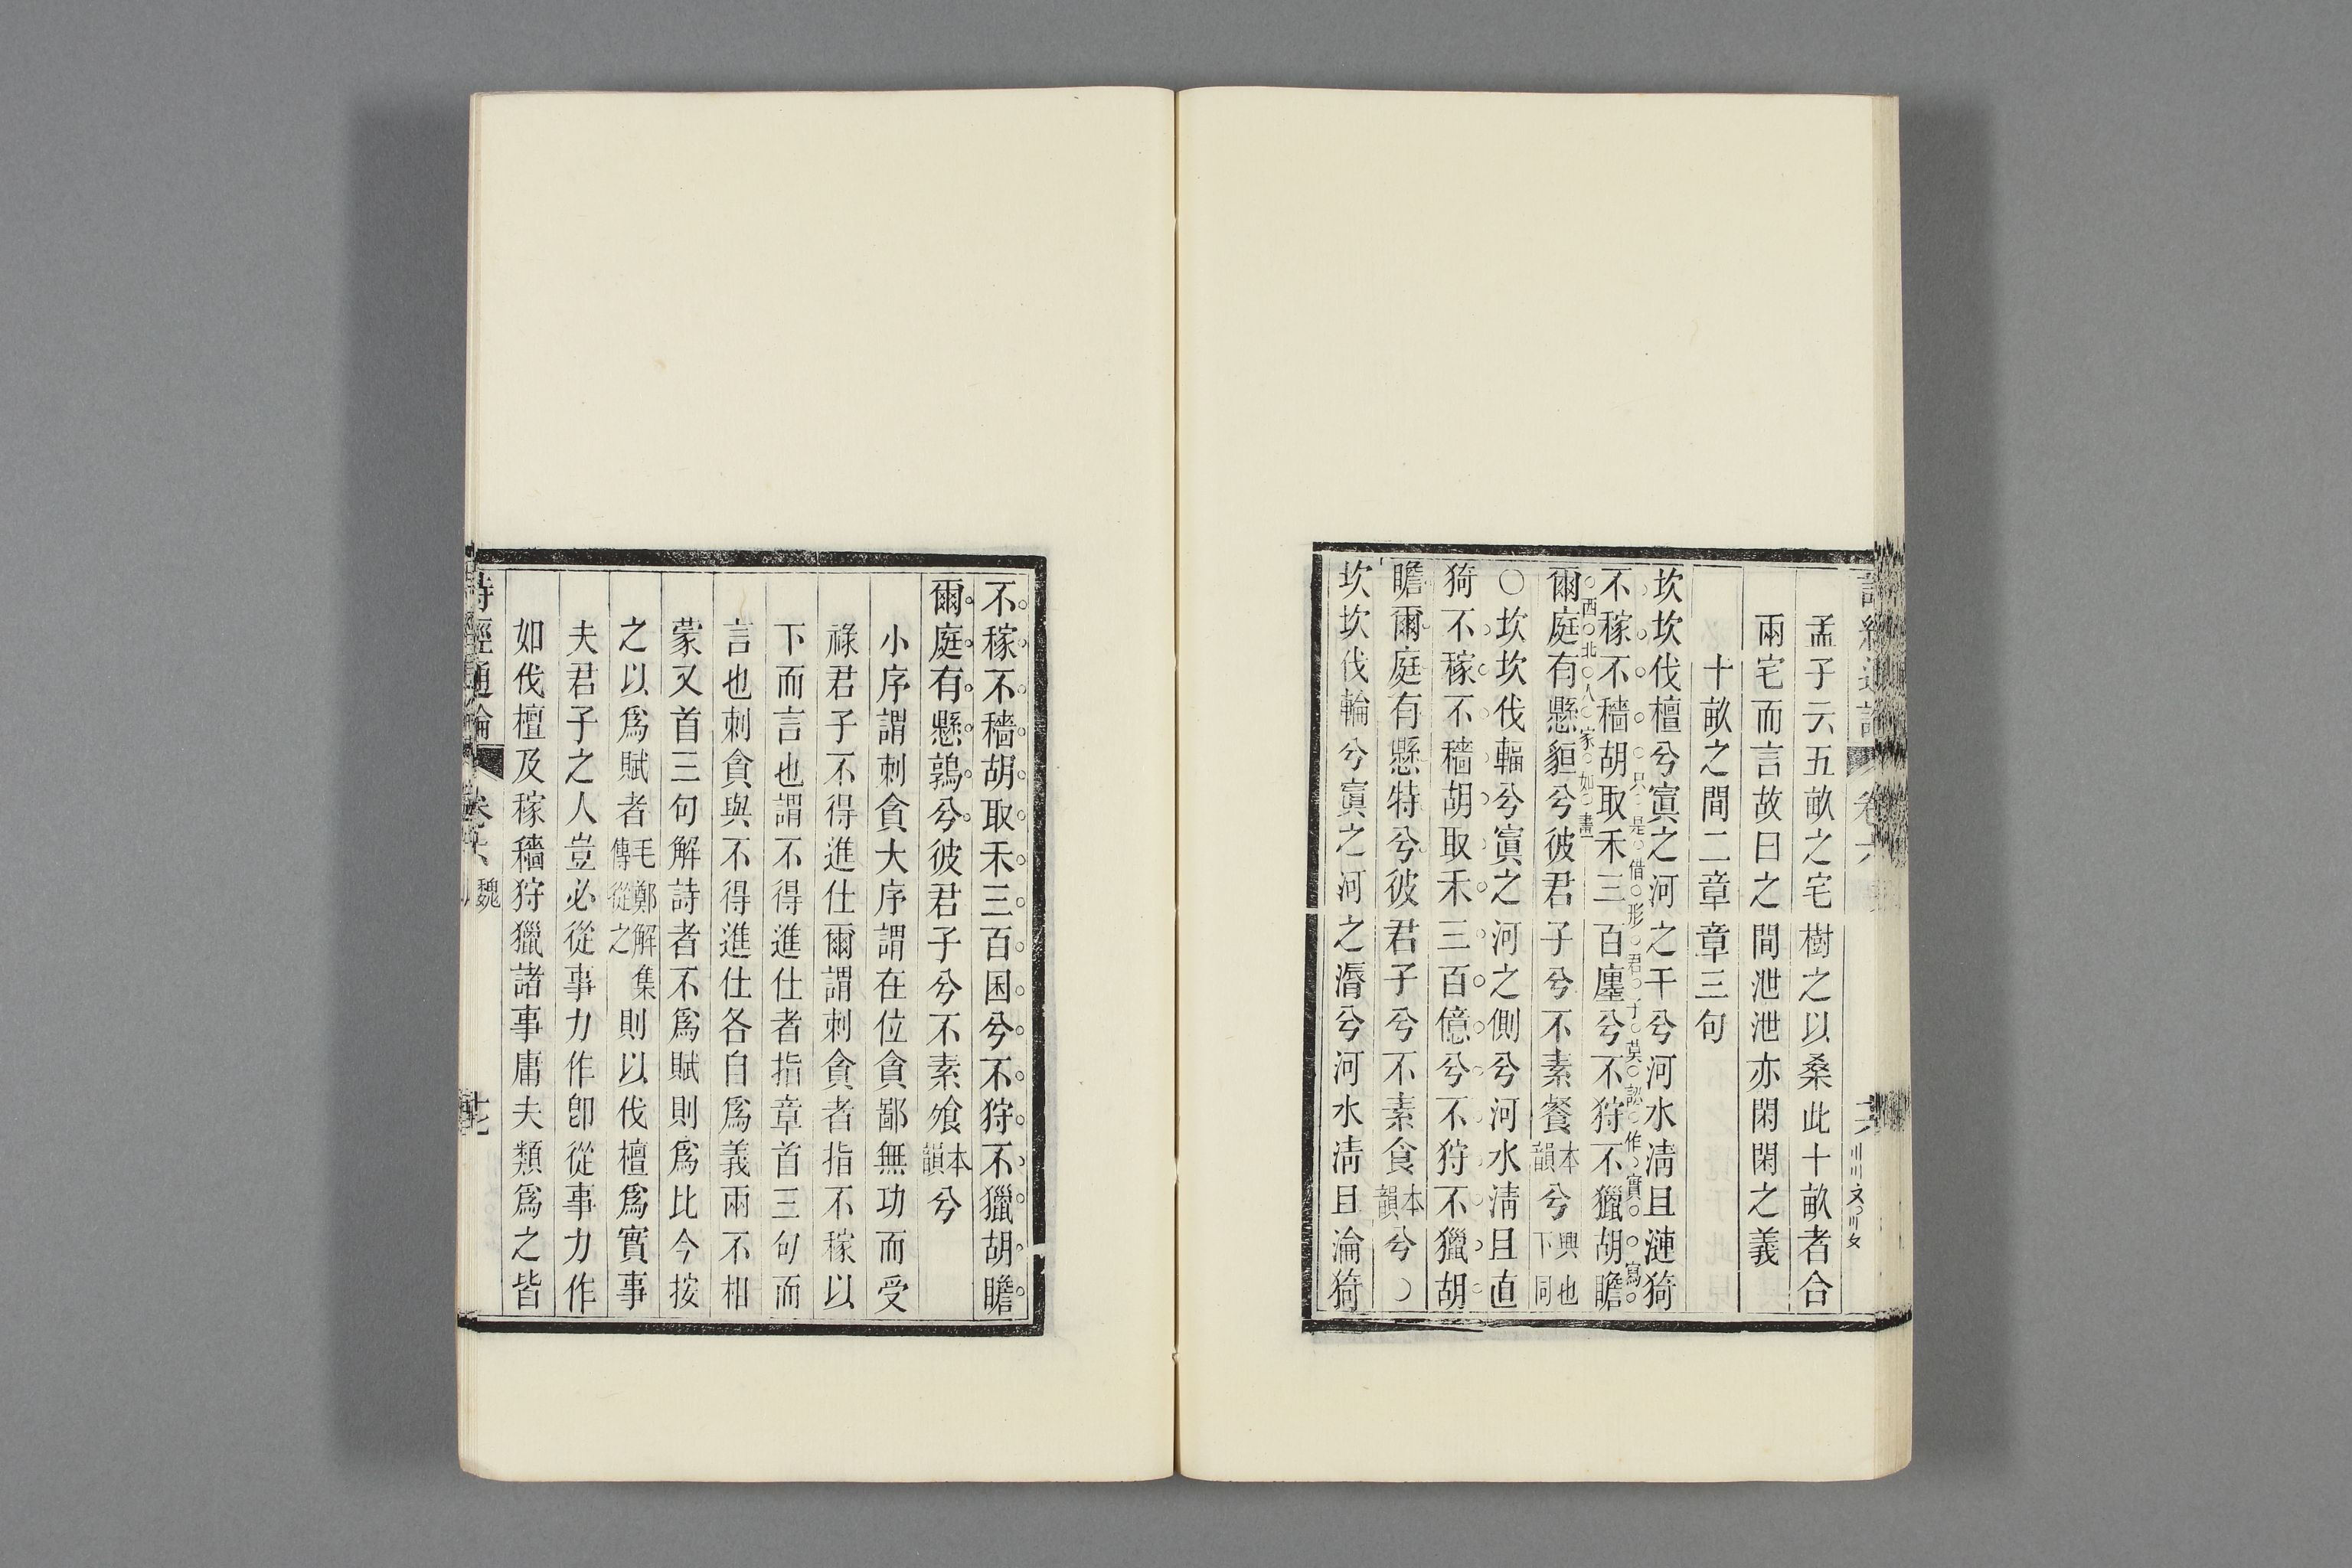 孟子云五畝之宅樹之以桑此十畝者合
兩宅而言故曰之間泄泄亦閑閑之義
十畝之間二章章三句
坎坎伐檀兮寘之河之干兮河水清且漣猗
只是借形君子莫認作實寫
不稼不穡胡取禾三百廛兮不狩不獵胡瞻
西北人家如畫
爾庭有懸貆兮彼君子兮不素餐本韻兮興也下同
○坎坎伐輻兮寘之河之側兮河水清且直
猗不稼不穡胡取禾三百億兮不狩不獵胡
瞻爾庭有懸特兮彼君子兮不素食本韻兮○
坎坎伐輪兮寘之河之漘兮河水清且淪猗
不稼不穡胡取禾三百囷兮不狩不獵胡瞻
爾庭有懸鶉兮彼君子兮不素飧本韻兮
小序謂刺貪大序謂在位貪鄙無功而受
祿君子不得進仕爾謂刺貪者指不稼以
下而言也謂不得進仕者指章首三句而
言也刺貪與不得進仕各自爲義兩不相
蒙又首三句解詩者不爲賦則爲比今按
之以爲賦者毛鄭解集傳從之則以伐檀爲實事
夫君子之人豈必從事力作卽從事力作
如伐檀及稼穡狩獵諸事庸夫類爲之皆
詩經通論 卷六 魏 十七